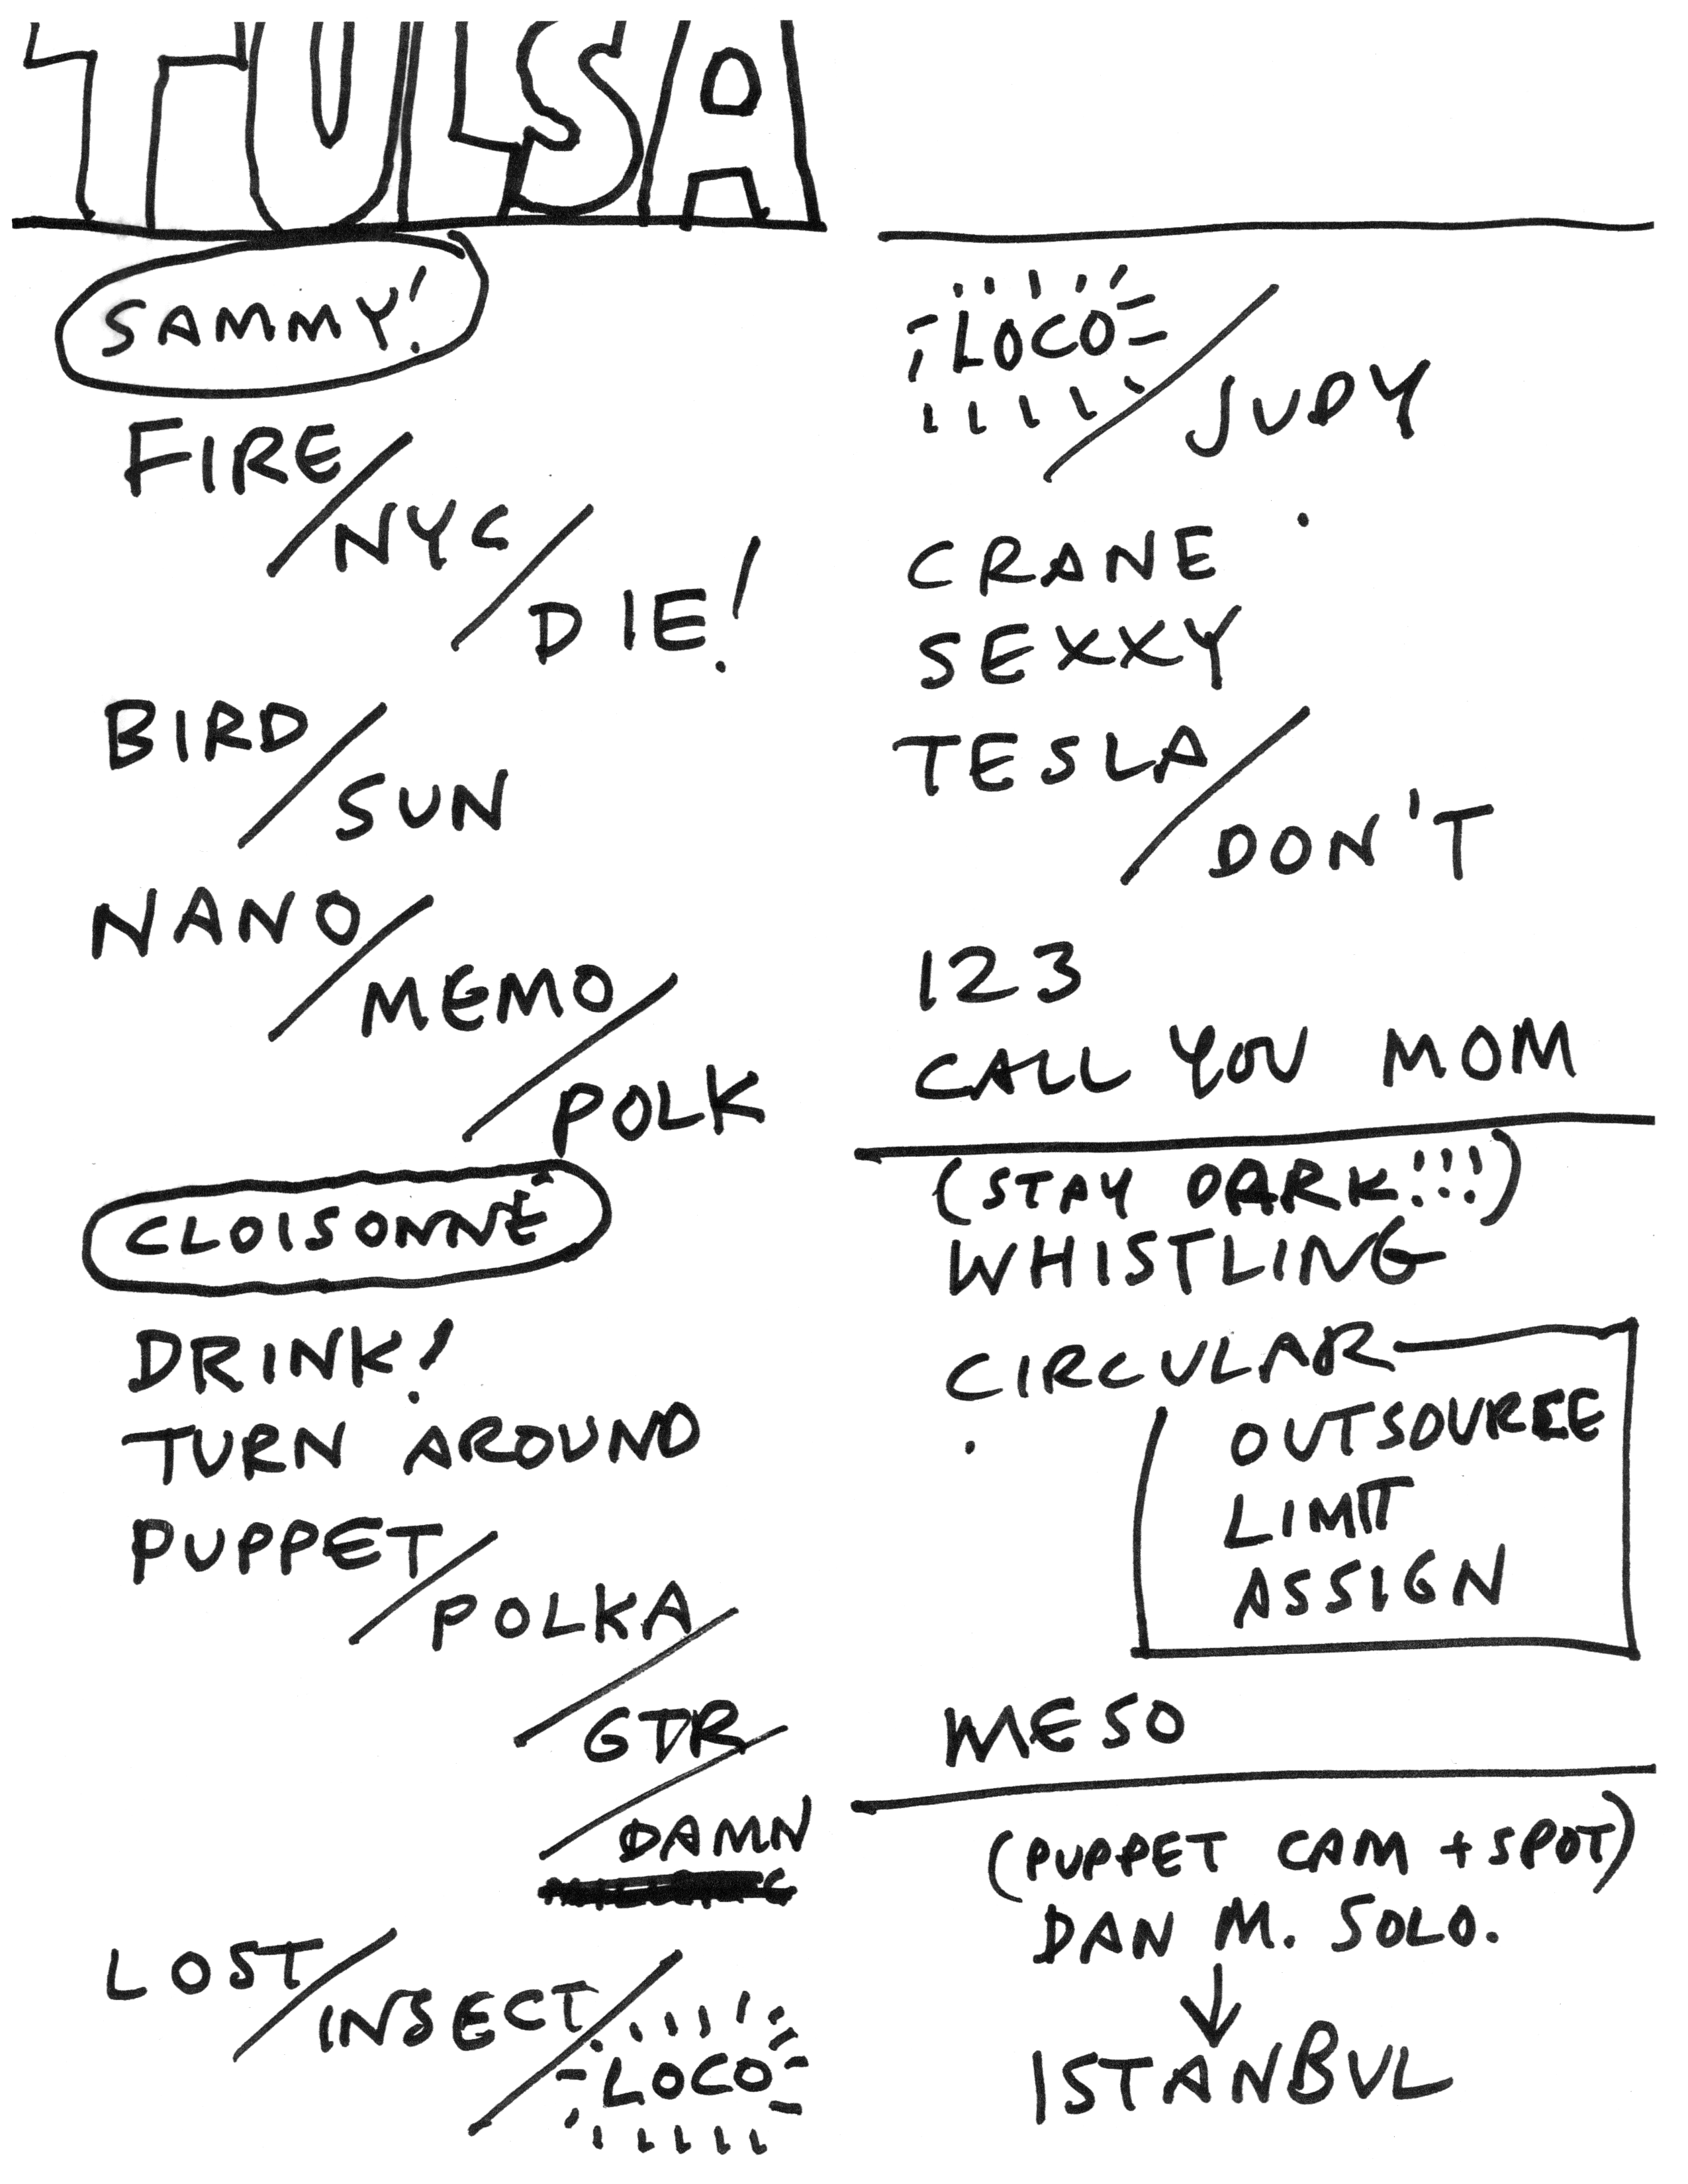 TULSA
SAMMY!
FIRE/NYC/DIE!
BIRD/SUN
NANO/MEMO/POLK
CLOISONNÉ
DRINK!
TURN AROUND
PUPPET/POLKA/GTR/DAMN
LOST/INSECT/LOCO
LOCO/JUDY
CRANE
SEXXY
TESLA/DON'T
123
CALL YOU MOM
(STAY DARK!!!)
WHISTLING
CIRCULAR
OUTSOURCE
LIMIT
ASSIGN
MESO
(PUPPET CAM + SPOT)
DAN M. SOLO.
ISTANBUL